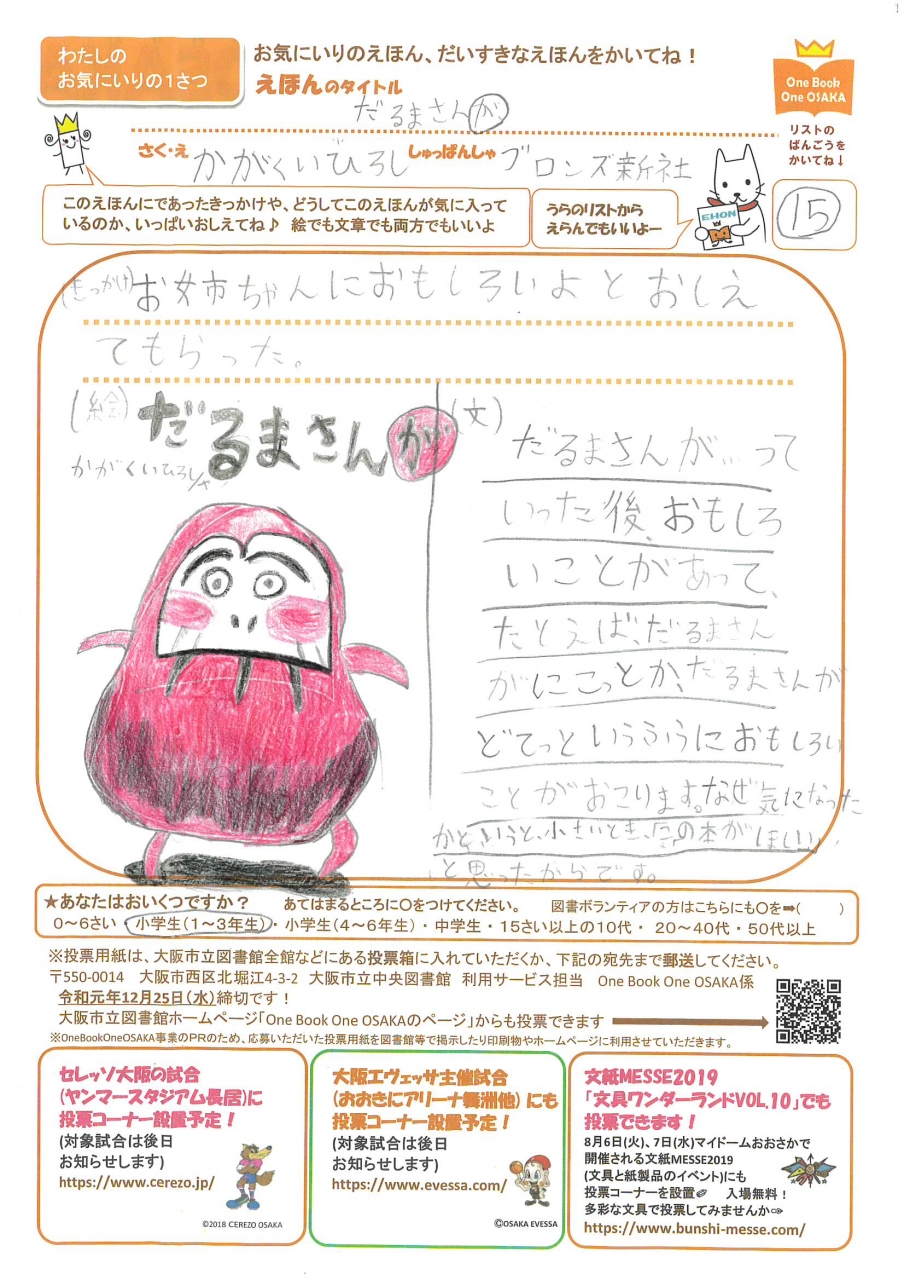 わたしの
お気にいりの1さつ
お気にいりのえほん、だいすきなえほんをかいてね！
えほんのタイトル
だるまさんが
One Book
One OSAKA
リストの
ばんごうを
かいてね↓
さく・え かがくいひろし しゅっぱんしゃ ブロンズ新社
このえほんにであったきっかけや、どうしてこのえほんが気に入って
いるのか、いっぱいおしえてね♪ 絵でも文章でも両方でもいいよ
うらのリストから
えらんでもいいよー
EHON
15
(きっかけ)お姉ちゃんにおもしろいよとおしえ
てもらった。
(絵)
だるまさんが
かがくいひろし/さく
(文)
だるまさんが…って
いった後、おもしろ
いことがあって、
たとえば、だるまさん
がにこっとか、だるまさんが
どてっというふうにおもしろい
ことがおこります。なぜ気になった
かというと、小さいとき、この本がほしい
と思ったからです。
★あなたはおいくつですか？ あてはまるところに○をつけてください。 図書ボランティアの方はこちらにも○を➡( )
0～6さい・小学生(1～3年生)・小学生(4～6年生)・中学生・15さい以上の10代・20～40代・50代以上
※投票用紙は、大阪市立図書館全館などにある投票箱に入れていただくか、下記の宛先まで郵送してください。
〒550-0014 大阪市西区北堀江4-3-2 大阪市立中央図書館 利用サービス担当 One Book One OSAKA係
令和元年12月25日(水)締切です！
大阪市立図書館ホームページ「One Book One OSAKAのページ」からも投票できます
※OneBookOneOSAKA事業のPRのため、応募いただいた投票用紙を図書館等で掲示したり印刷物やホームページに利用させていただきます。
セレッソ大阪の試合
(ヤンマースタジアム長居)に
投票コーナー設置予定！
(対象試合は後日
お知らせします)
https://www.cerezo.jp/
©2018 CEREZO OSAKA
大阪エヴェッサ主催試合
(おおきにアリーナ舞洲他)にも
投票コーナー設置予定！
(対象試合は後日
お知らせします)
https://www.evessa.com/
©OSAKA EVESSA
文紙MESSE2019
「文具ワンダーランドVOL.10」でも
投票できます！
8月6日(火)、7日(水)マイドームおおさかで
開催される文紙MESSE2019
(文具と紙製品のイベント)にも
投票コーナーを設置 入場無料！
多彩な文具で投票してみませんか⇒
https://www.bunshi-messe.com/